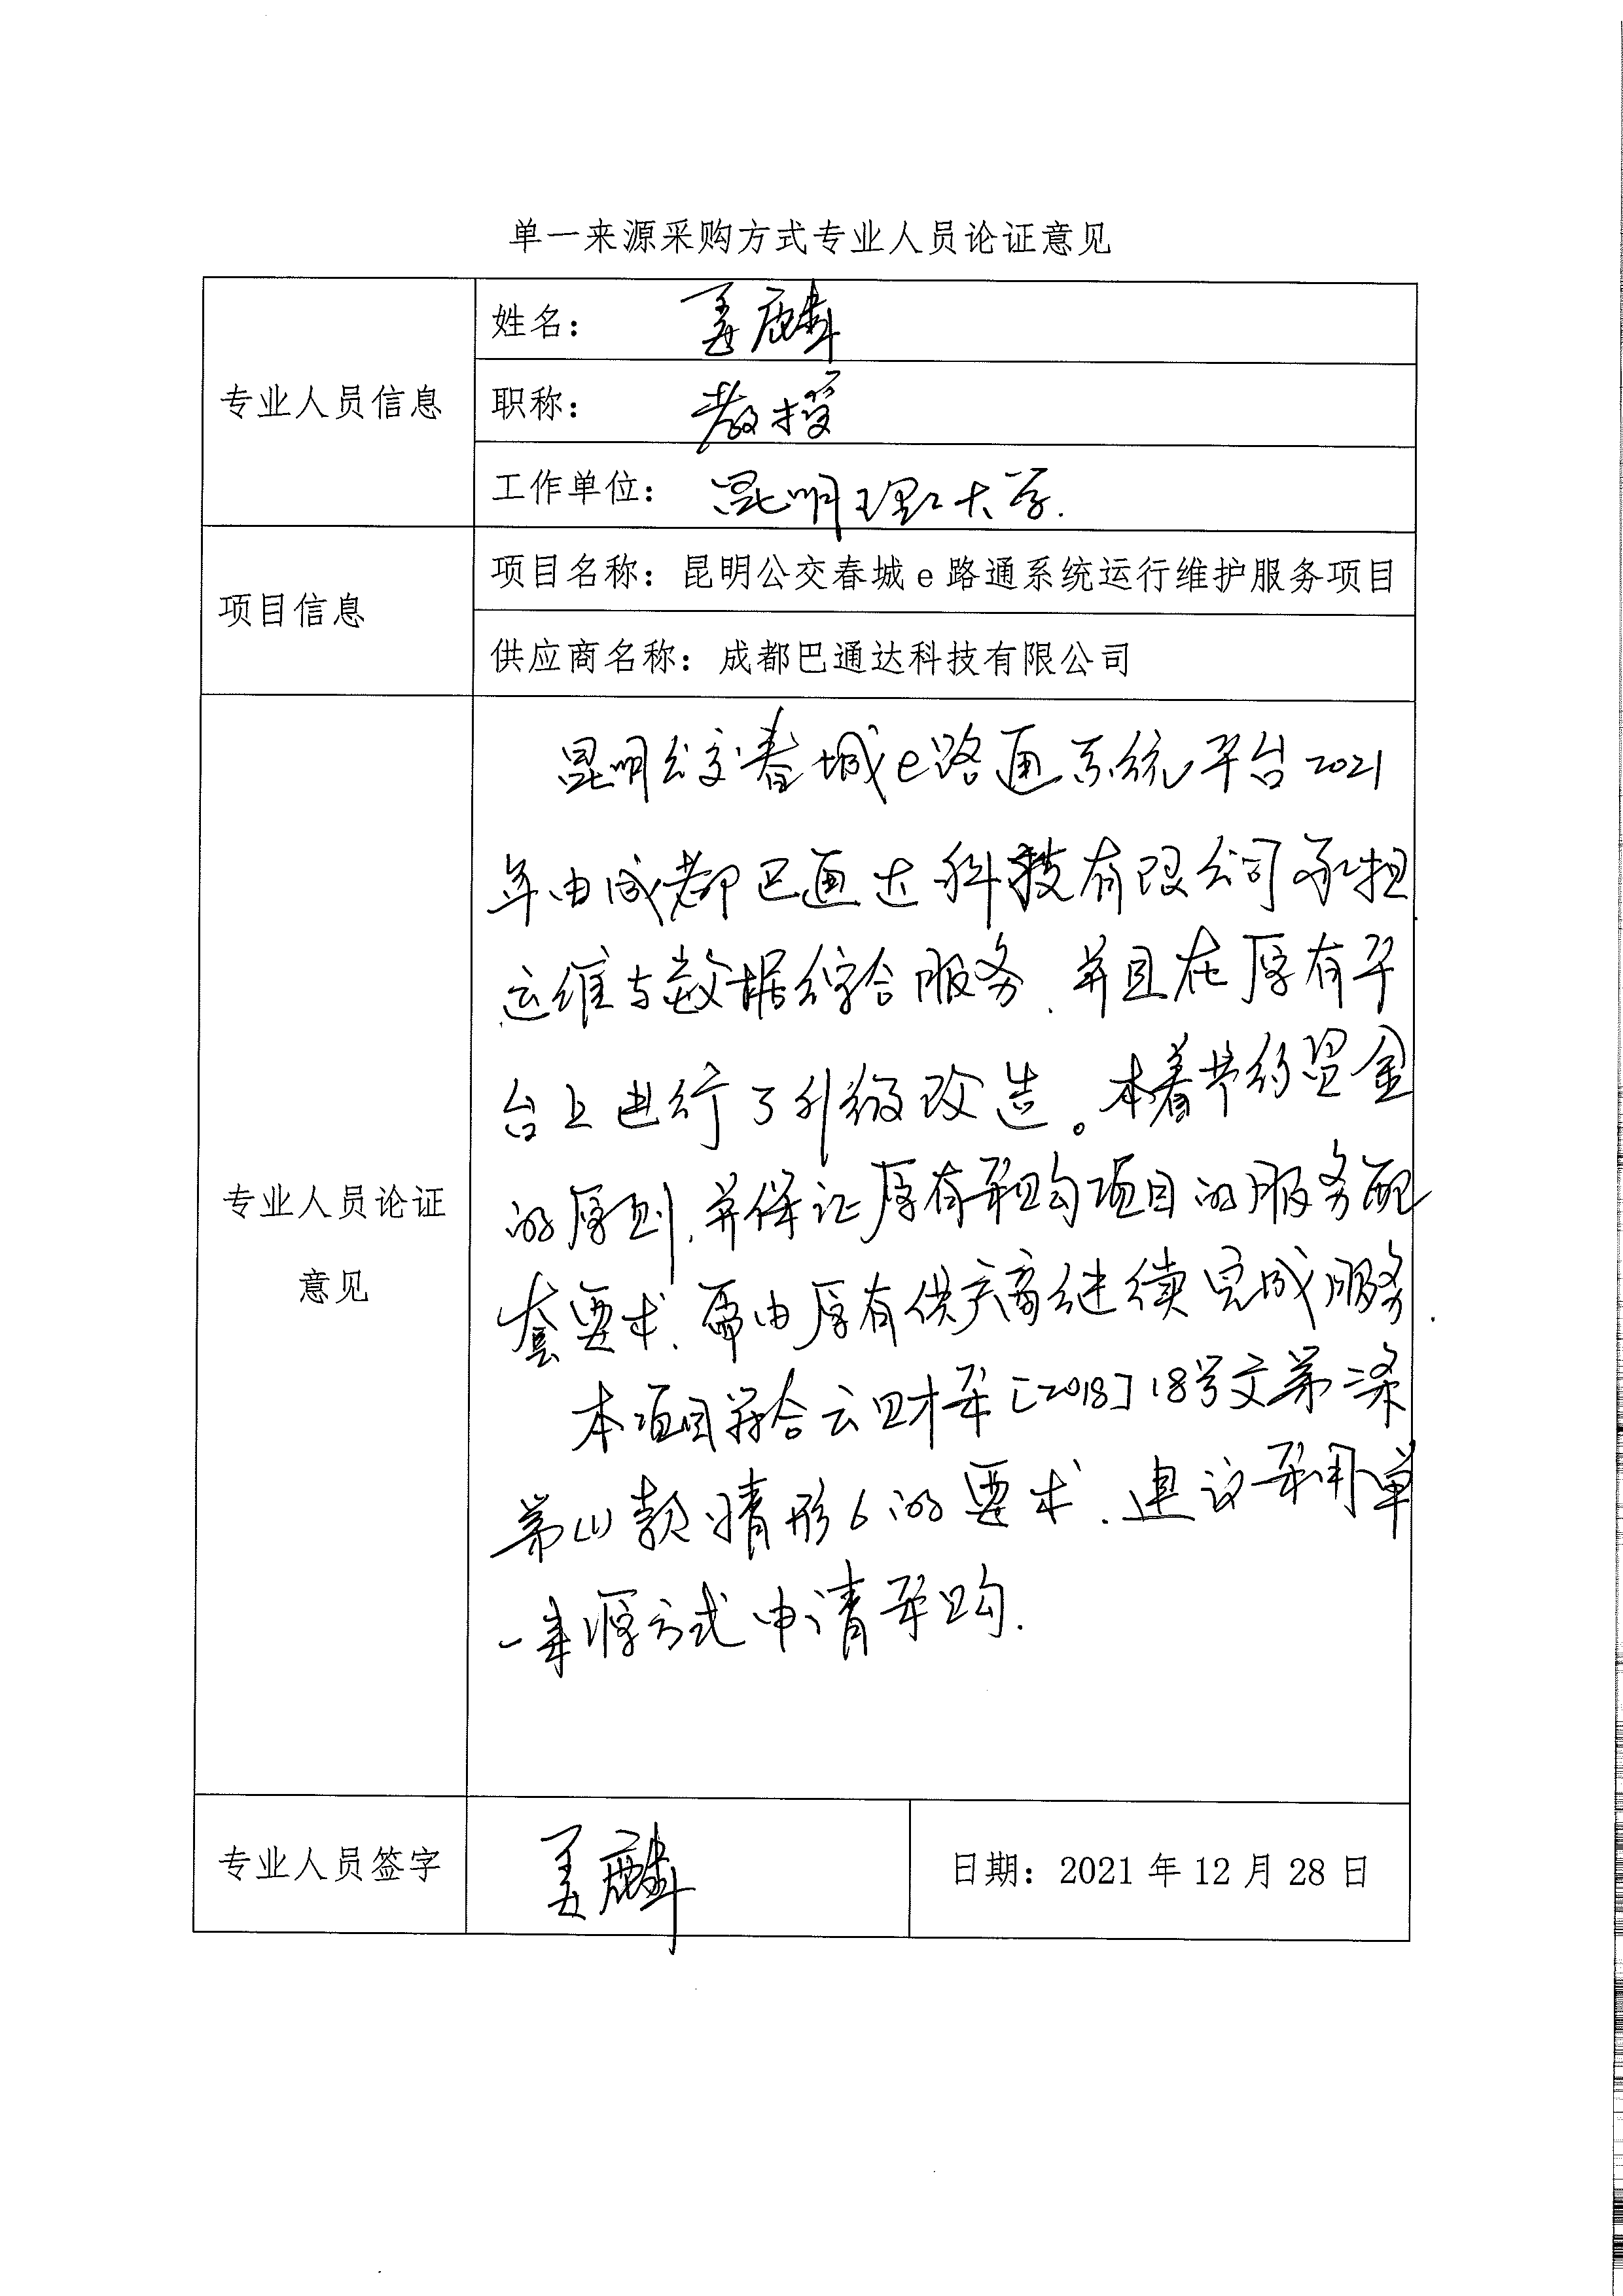 单一来源采购方式专业人员论证意见
专业人员信息
姓名：姜麟
职称：教授
工作单位：昆明理工大学.
项目信息
项目名称：昆明公交春城e路通系统运行维护服务项目
供应商名称：成都巴通达科技有限公司
专业人员论证
意见
昆明公交春城e路通系统平台2021
年由成都巴通达科技有限公司承担
运维与数据综合服务,并且在原有平
台上进行了升级改造。本着节约资金
的原则,并保证原有采购项目的服务配
套要求,需由原有供应商继续完成服务.
本项目符合云财采[2018]18号文第二条
第(1)款情形6的要求.建议采用单
一来源方式申请采购.
专业人员签字
姜麟
日期：2021年12月28日